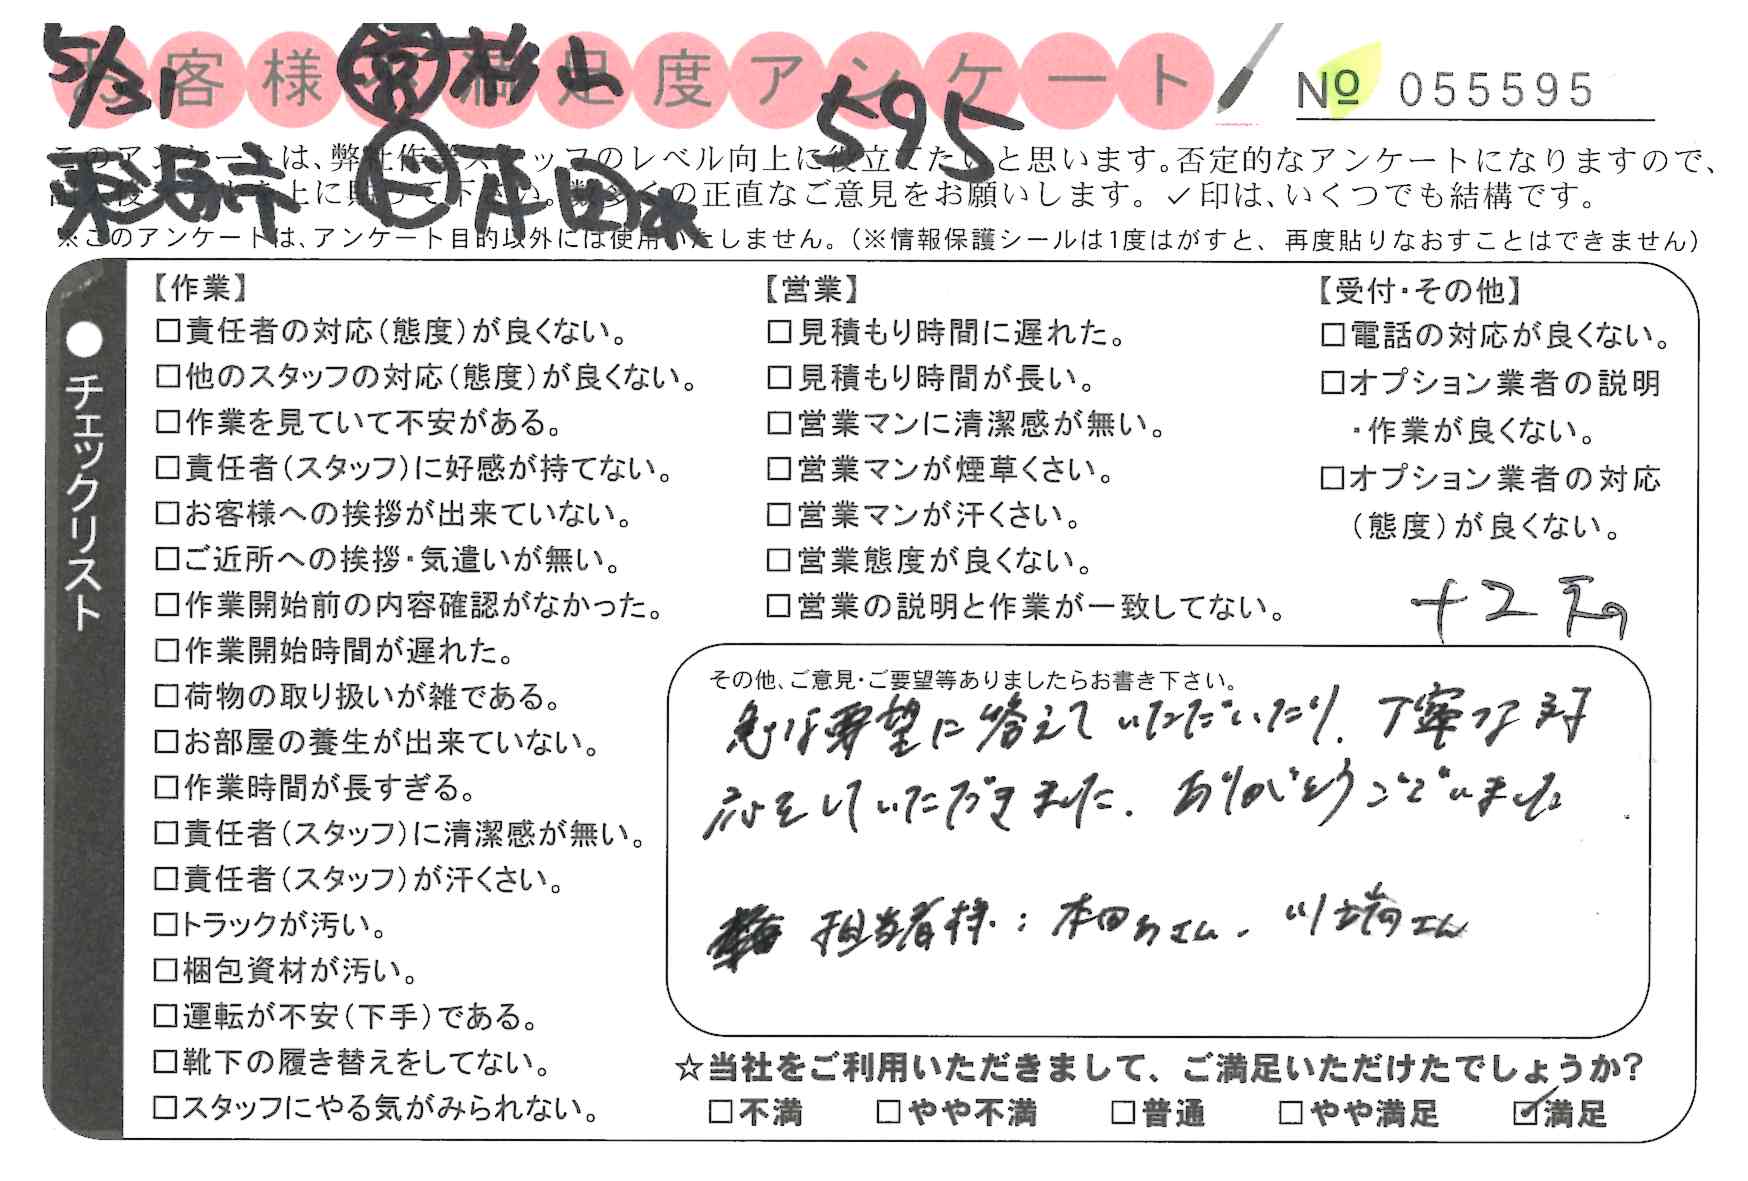 お客様満足度アンケート
№ 055595
5/31 営 杉山 595
本田
このアンケートは、弊社作業スタッフのレベル向上に役立てたいと思います。否定的なアンケートになりますので、
上に貼って下さい。数多くの正直なご意見をお願いします。✓印は、いくつでも結構です。
※このアンケートは、アンケート目的以外には使用いたしません。(※情報保護シールは1度はがすと、再度貼りなおすことはできません)
●チェックリスト
【作業】
□責任者の対応(態度)が良くない。
□他のスタッフの対応(態度)が良くない。
□作業を見ていて不安がある。
□責任者(スタッフ)に好感が持てない。
□お客様への挨拶が出来ていない。
□ご近所への挨拶・気遣いが無い。
□作業開始前の内容確認がなかった。
□作業開始時間が遅れた。
□荷物の取り扱いが雑である。
□お部屋の養生が出来ていない。
□作業時間が長すぎる。
□責任者(スタッフ)に清潔感が無い。
□責任者(スタッフ)が汗くさい。
□トラックが汚い。
□梱包資材が汚い。
□運転が不安(下手)である。
□靴下の履き替えをしてない。
□スタッフにやる気がみられない。
【営業】
□見積もり時間に遅れた。
□見積もり時間が長い。
□営業マンに清潔感が無い。
□営業マンが煙草くさい。
□営業マンが汗くさい。
□営業態度が良くない。
□営業の説明と作業が一致してない。
【受付・その他】
□電話の対応が良くない。
□オプション業者の説明
・作業が良くない。
□オプション業者の対応
(態度)が良くない。
+2
その他、ご意見・ご要望等ありましたらお書き下さい。
急な要望に答えていただいたり、丁寧な対
応をしていただきました。ありがとうございました
担当者様:本田さん、川端さん
☆当社をご利用いただきまして、ご満足いただけたでしょうか?
□不満 □やや不満 □普通 □やや満足 ☑満足